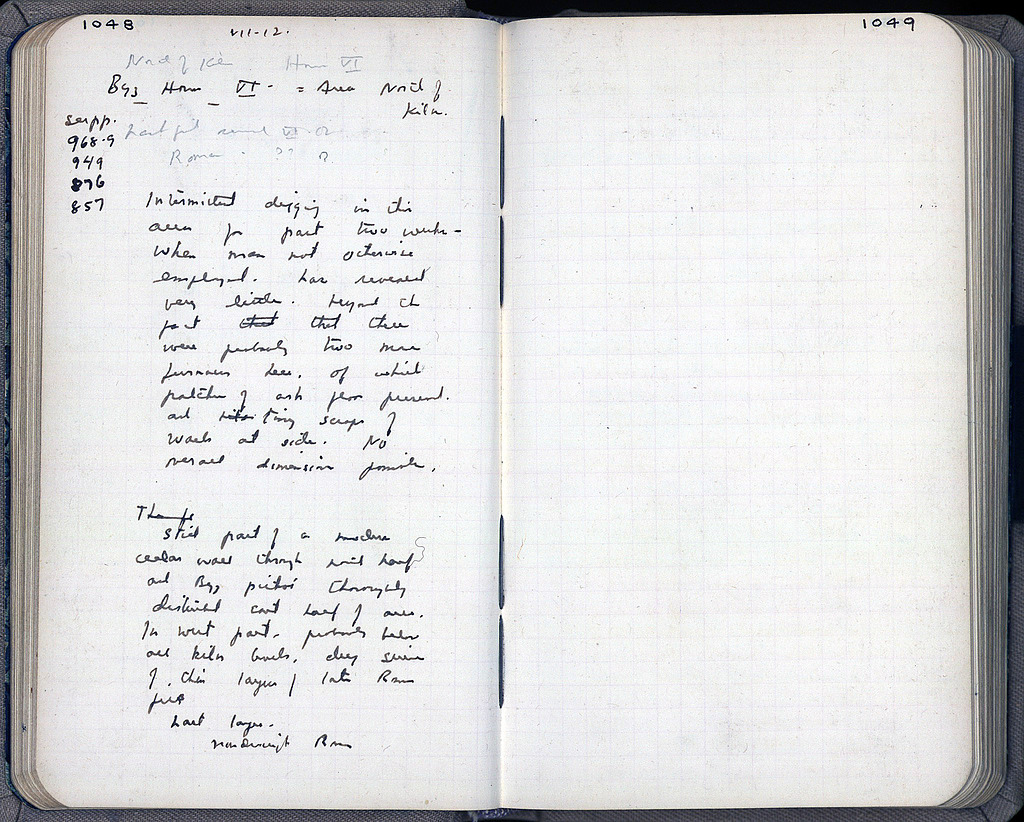 1048
VII-12.
1049
North of Kiln House VI
Byz House VI - = Area North of
Kiln.
see pp.
968-9
949
896
857
Roman ?? 
Intermittent digging in this
area for past two weeks -
when men not otherwise
employed. has revealed
very little. beyond the
fact that that there
were probably two more
furnaces here. of which
patches of ash floor present.
and tiny scraps of
walls at side. No
overall dimension possible.
Though
still part of a modern
cellar wall through
and Byz pithoi thoroughly
disturbed east half of area.
In west part. probably below
all kiln levels. deep series
of thin layers of late Roman
fill
Last layer.
Roman